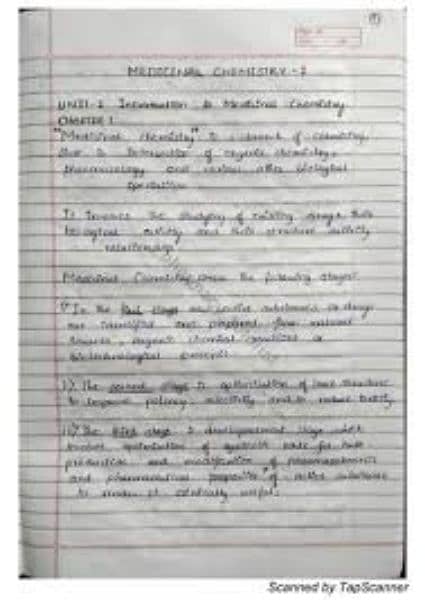 (1)
MEDICINAL CHEMISTRY - I
UNIT-I Introduction to Medicinal Chemistry
CHAPTER 1
"Medicinal chemistry" is a branch of chemistry
that is of organic chemistry,
pharmacology and various other biological
It involves the studying of existing drugs, their
biological activity and their structure activity
relationship.
Medicinal Chemistry the following stages:
In the first stage new active substances or drugs
are identified and prepared from natural
sources, organic chemical reactions or
biotechnological process.
ii) The second stage is optimization of lead structure
to improve potency, selectivity and to reduce toxicity.
iii) The third stage is development stage which
involve optimization of synthetic route for bulk
production and modification of pharmacokinetic
and pharmaceutical properties of active substance
to render it clinically useful.
Scanned by TapScanner